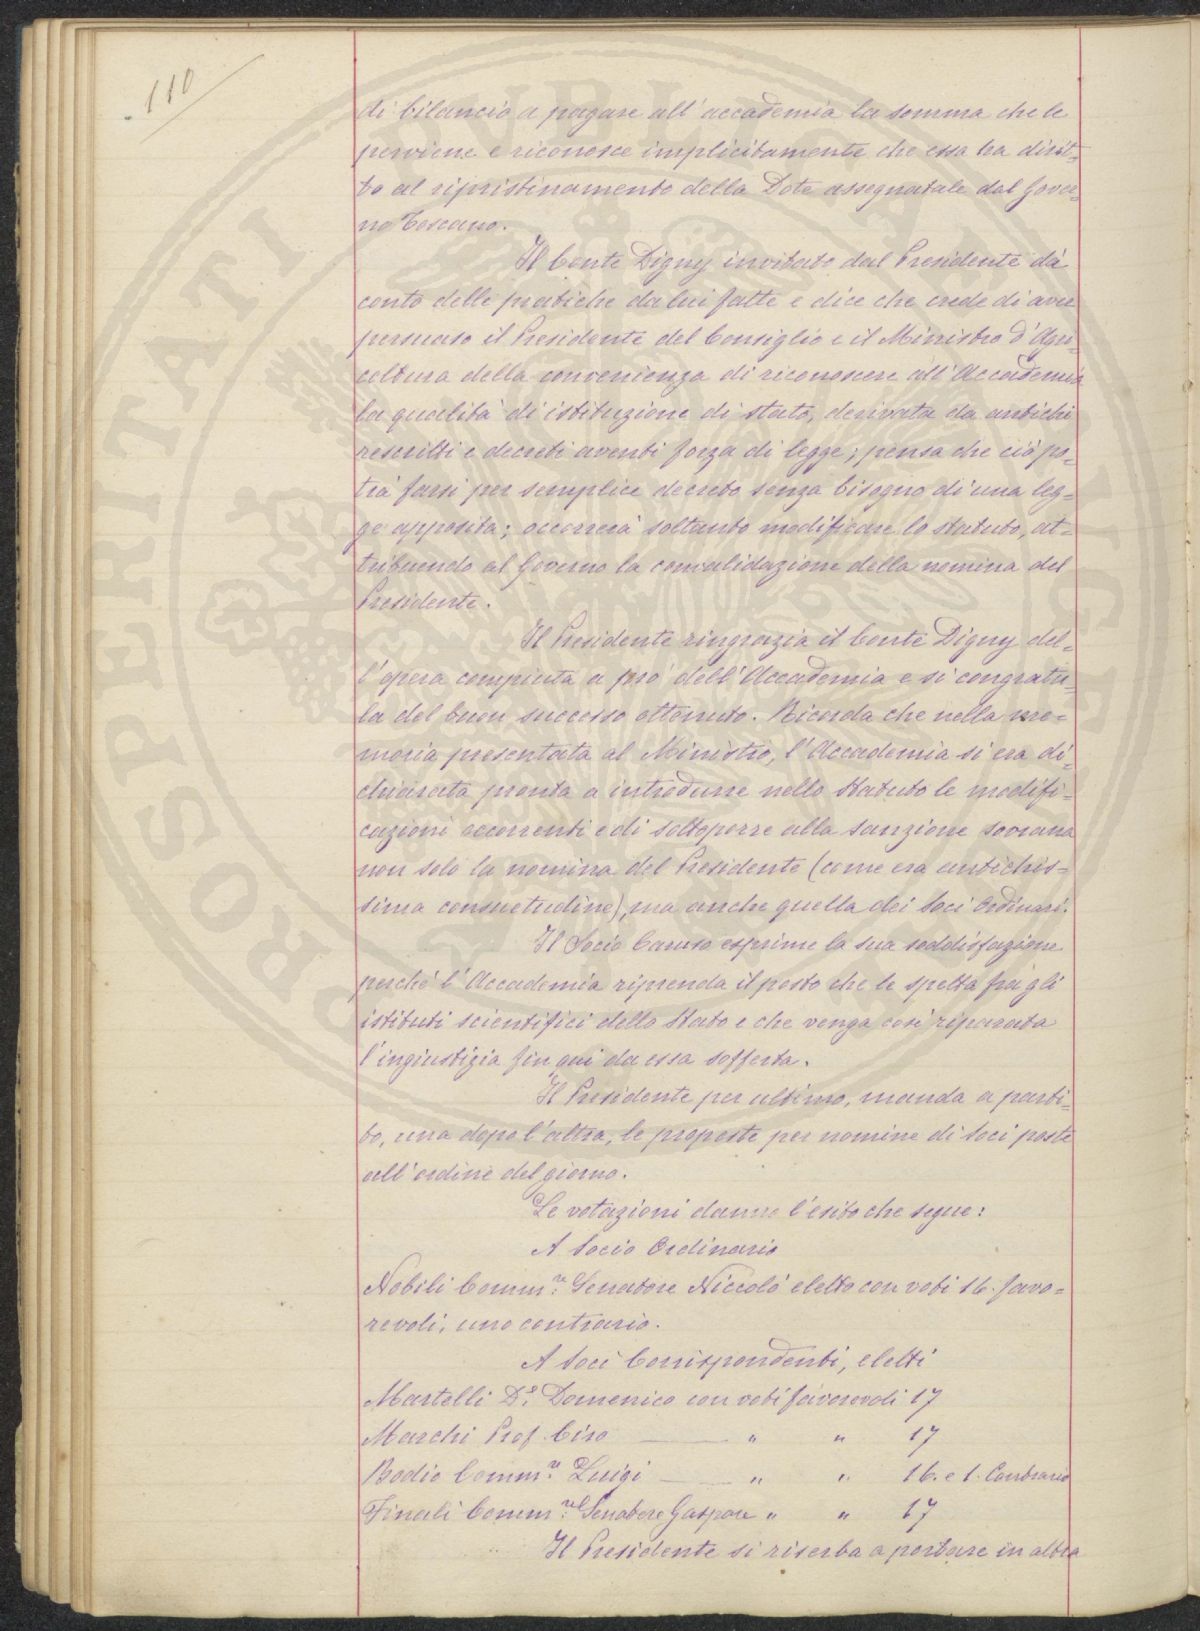 110
di bilancio a pagare all'accademia la somma che le
perviene e riconosce implicitamente che essa ha dirit=
to al ripristinamento della Dote assegnatale dal Gover=
no Toscano.
Il Conte Digny invitato dal Presidente dà
conto delle pratiche da lui fatte e dice che crede di aver
persuaso il Presidente del Consiglio e il Ministro d'Agri=
coltura della convenienza di riconoscere all'Accademia
la qualità di istituzione di stato, derivata da antichi
rescritti e decreti aventi forza di legge; pensa che ciò po=
trà farsi per semplice decreto senza bisogno di una leg=
ge apposita; occorrerà soltanto modificare lo statuto, at=
tribuendo al Governo la convalidazione della nomina del
Presidente.
Il Presidente ringrazia il Conte Digny del=
l'opera compiuta a pro' dell'Accademia e si congratu=
la del buon successo ottenuto. Ricorda che nella me=
moria presentata al Ministro, l'Accademia si era di=
chiarata pronta a introdurre nello Statuto le modifi=
cazioni occorrenti e di sottoporre alla sanzione sovrana
non solo la nomina del Presidente (come era antichis=
sima consuetudine), ma anche quella dei Soci Ordinari.
Il Socio Caruso esprime la sua soddisfazione
perché l'Accademia riprenda il posto che le spetta fra gli
istituti scientifici dello Stato e che venga così riparata
l'ingiustizia fin qui da essa sofferta.
Il Presidente per ultimo, manda a parti=
to, una dopo l'altra, le proposte per nomine di Soci poste
all'ordine del giorno.
Le votazioni danno l'esito che segue:
A Socio Ordinario
Nobili Comm.re Senatore Niccolò eletto con voti 16. favo=
revoli, uno contrario.
A Soci Corrispondenti, eletti
Martelli Dr. Domenico con voti favorevoli 17
Marchi Prof. Ciro " " 17
Bodio Comm.re Luigi " " 16. e 1. Contrario
Finali Comm.re Senatore Gaspare " " 17
Il Presidente si riserba a portare in altra
PROSPERITATI PVBLICAE AVGENDAE